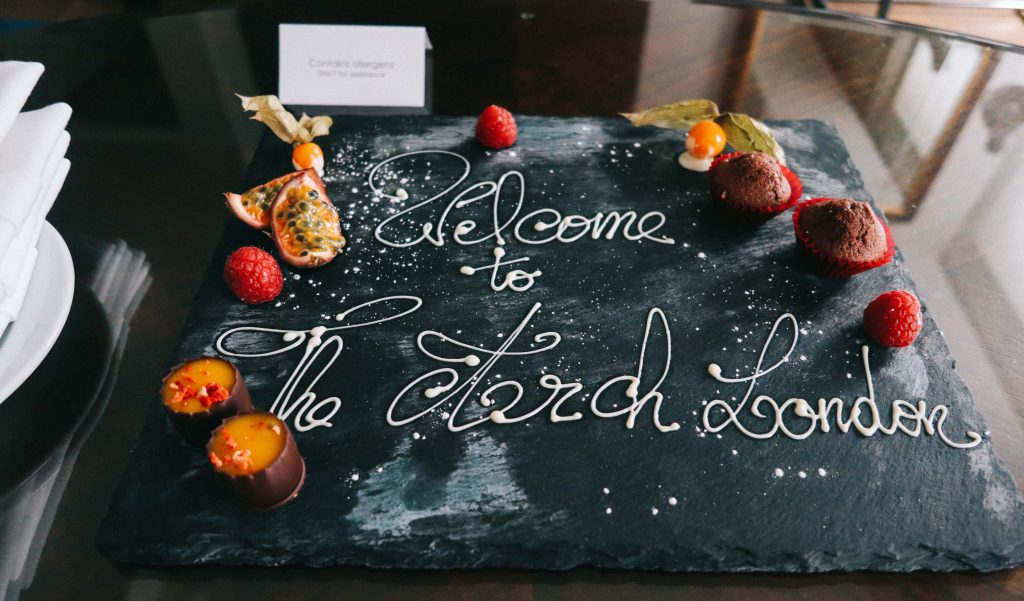 Contains allergens
Dial 7 for assistance
Welcome
to
The Arch London